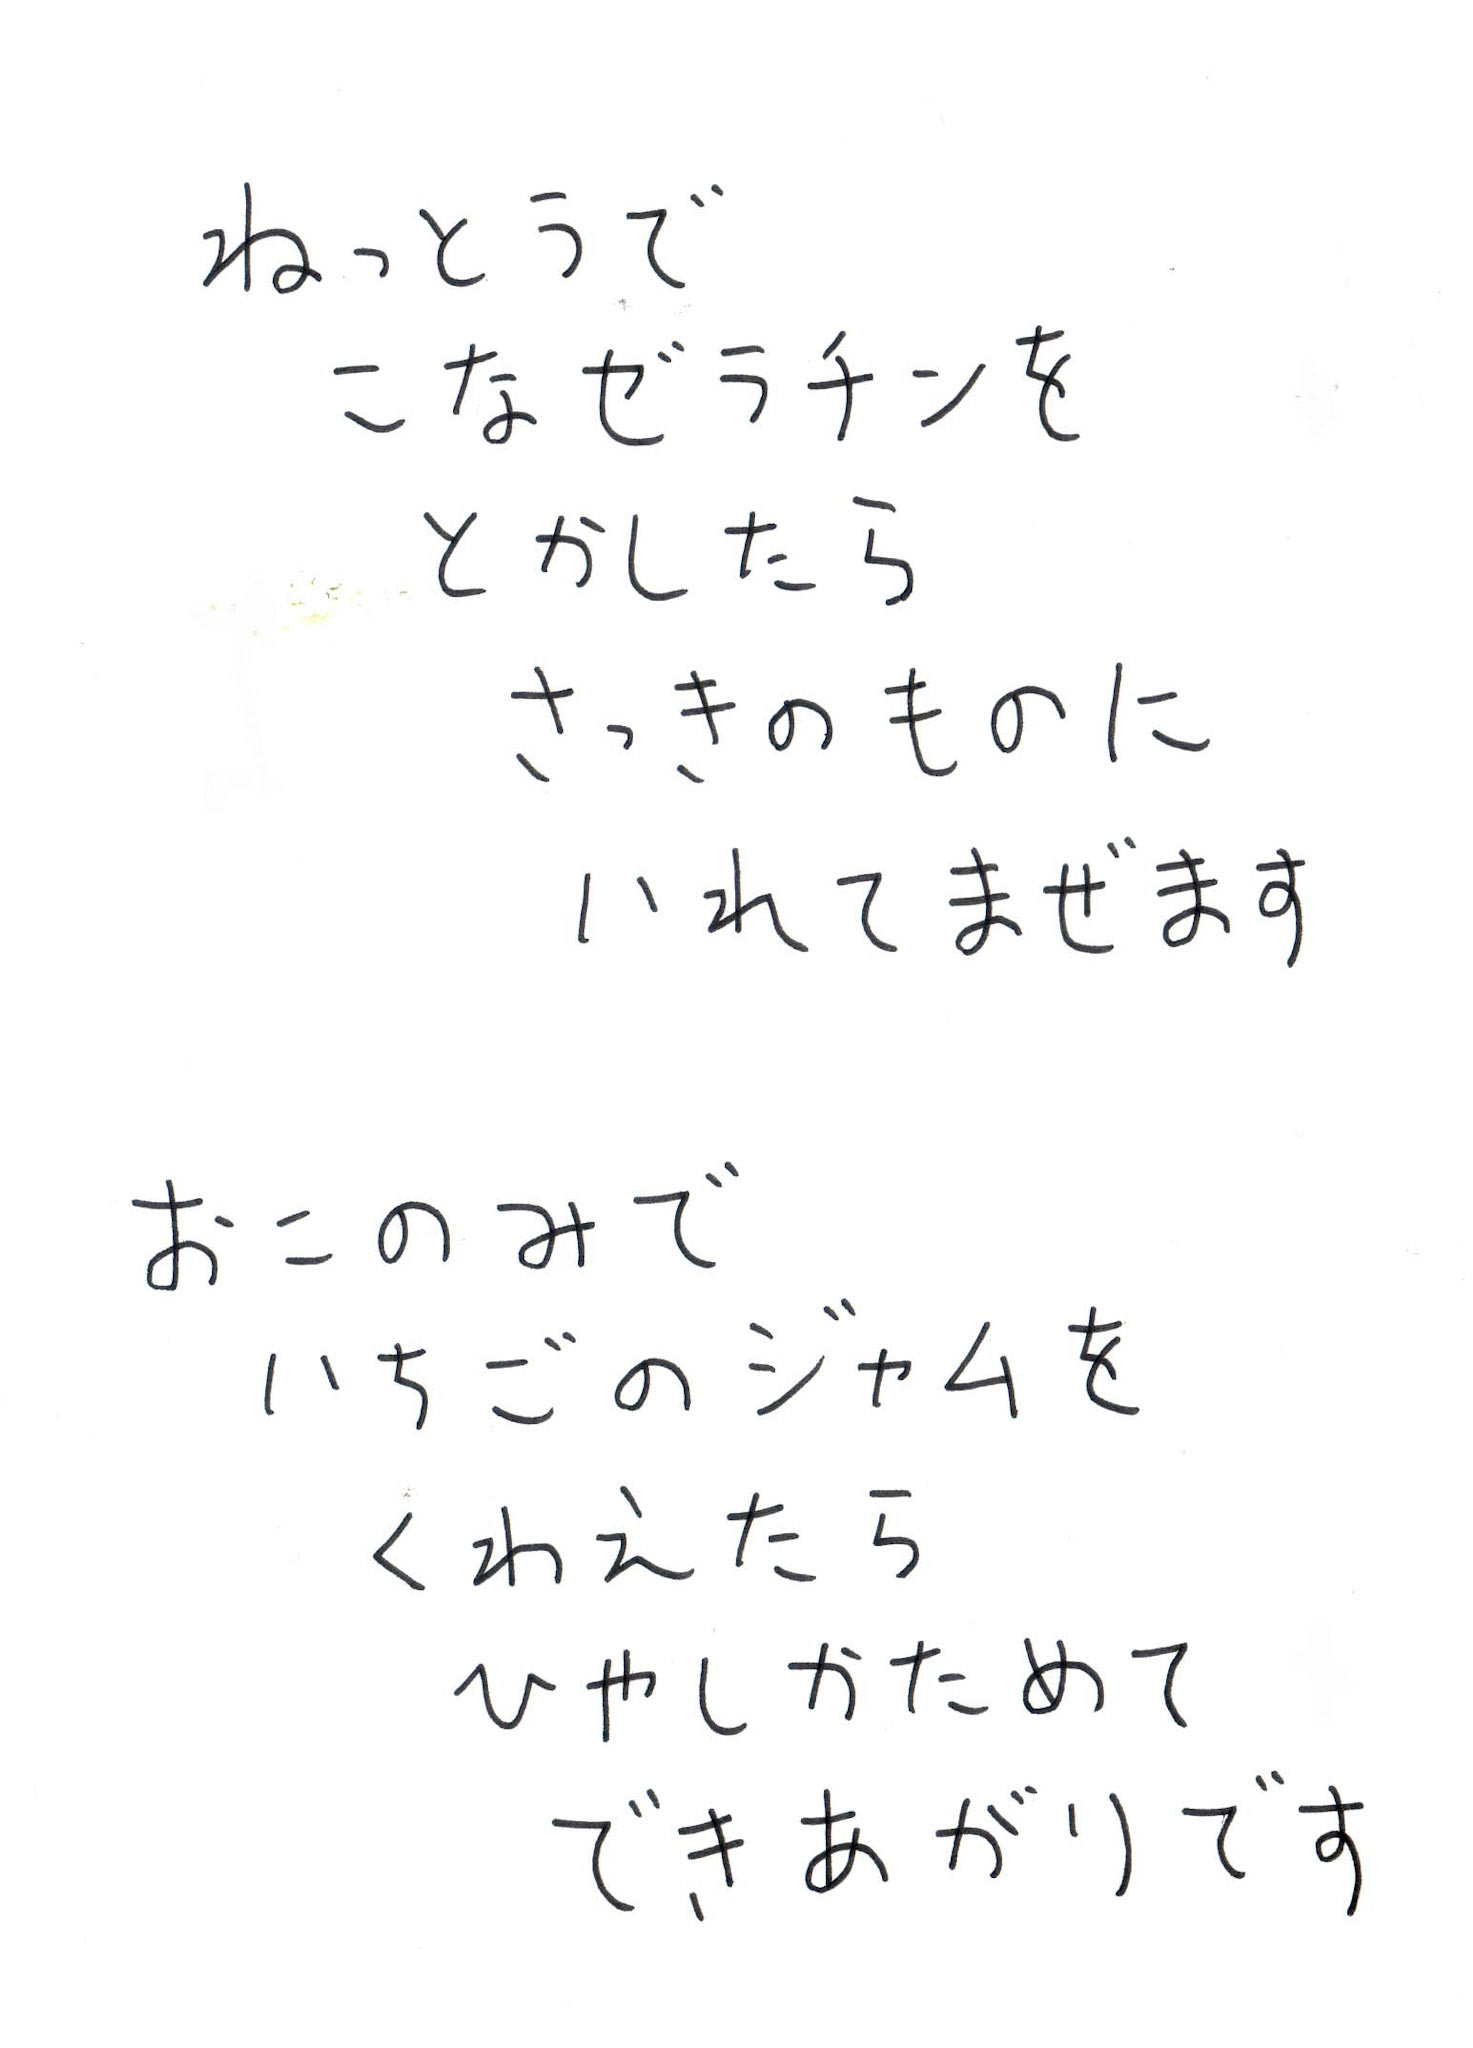 ねっとうで
こなゼラチンを
とかしたら
さっきのものに
いれてまぜます
おこのみで
いちごのジャムを
くわえたら
ひやしかためて
できあがりです